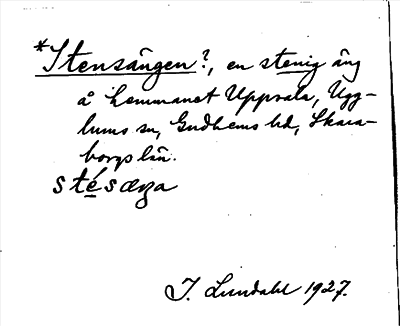 *Stensängen?, en stenig äng
å hemmanet Uppsala, Ugg-
lums sn, Gudhems hd, Skara-
borgs län.
stésæŋa
I. Lundahl 1927.